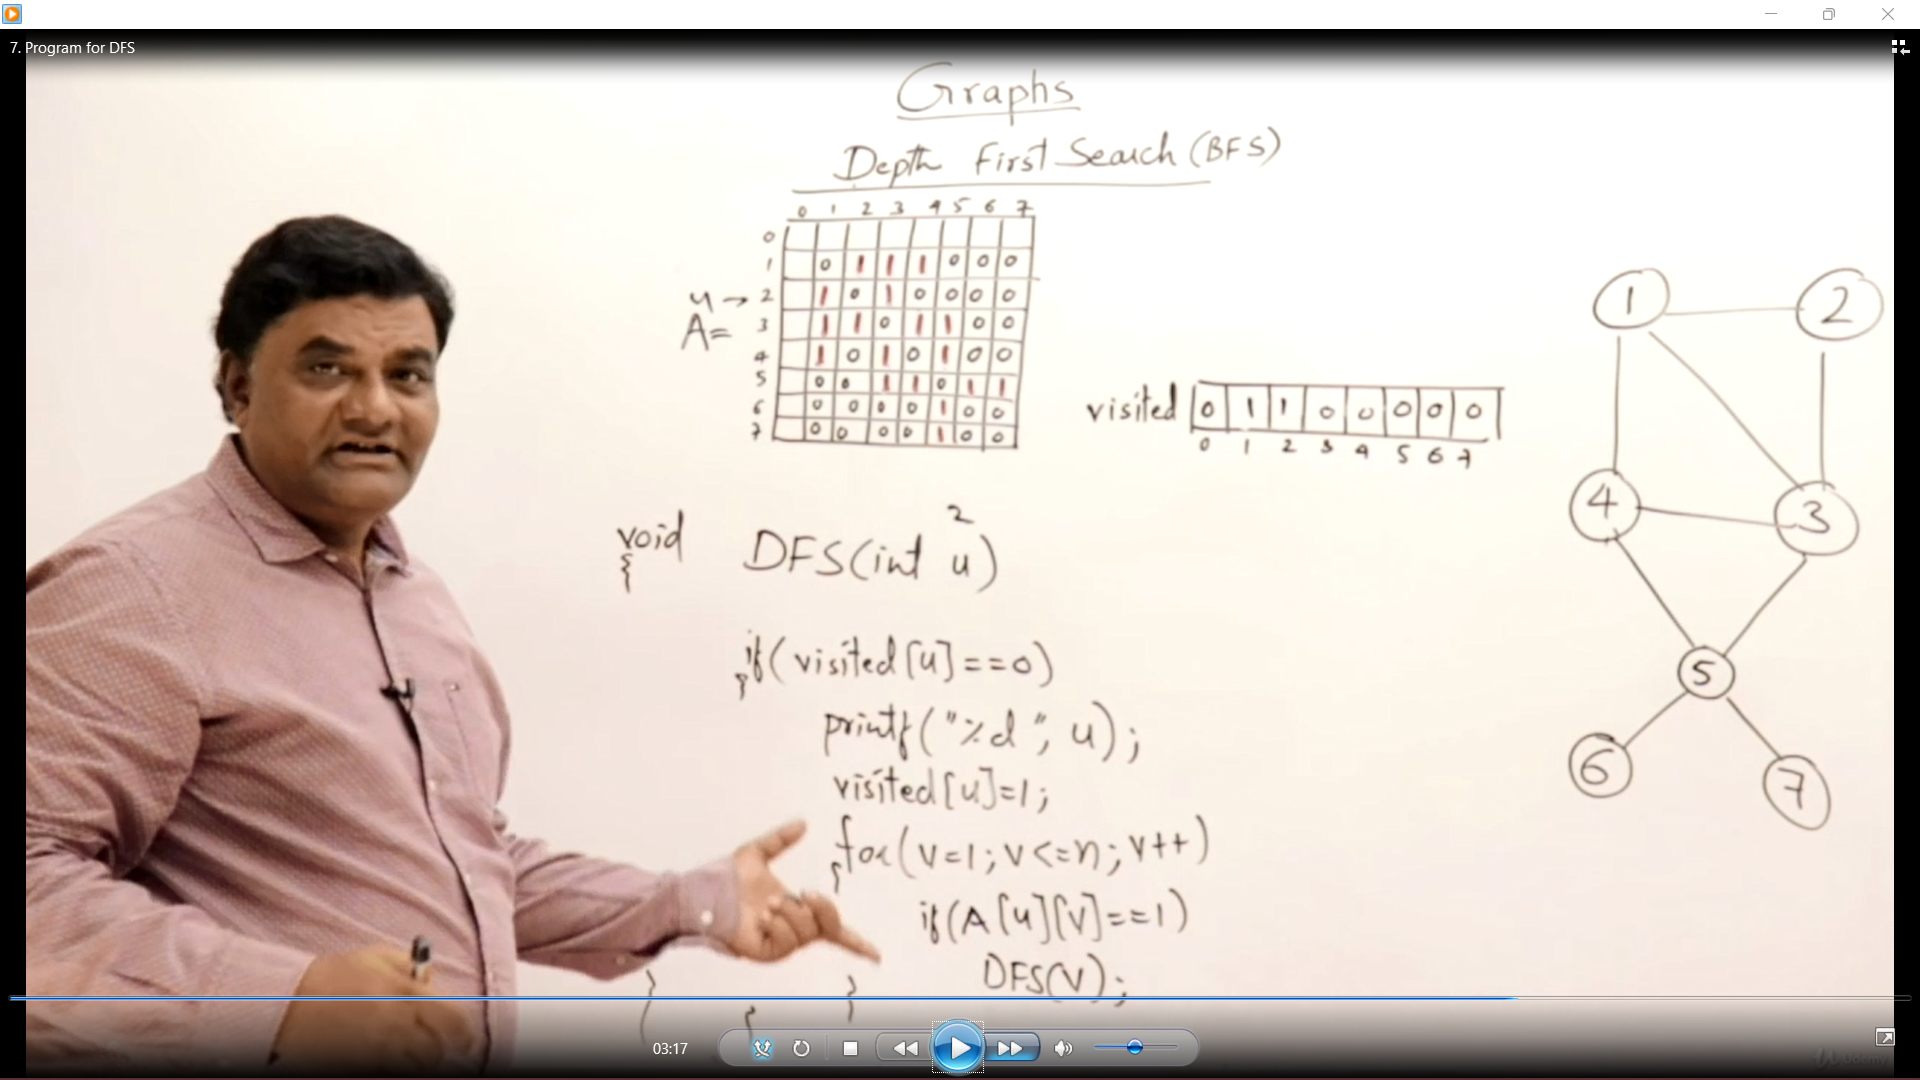 7. Program for DFS
Graphs
Depth First Search (BFS)
0 1 2 3 4 5 6 7
0
1 0 1 1 1 0 0 0
u → 2 1 0 1 0 0 0 0
A= 3 1 1 0 1 1 0 0
4 1 0 1 0 1 0 0
5 0 0 1 1 0 1 1
6 0 0 0 0 1 0 0
7 0 0 0 0 1 0 0
visited 0 1 1 0 0 0 0 0
0 1 2 3 4 5 6 7
1 2
4 3
5
6 7
2
void DFS(int u)
{
if(visited[u]==0)
{
printf("%d", u);
visited[u]=1;
for(v=1;v<=n;v++)
{
if(A[u][v]==1)
DFS(v);
} } }
03:17
Udemy